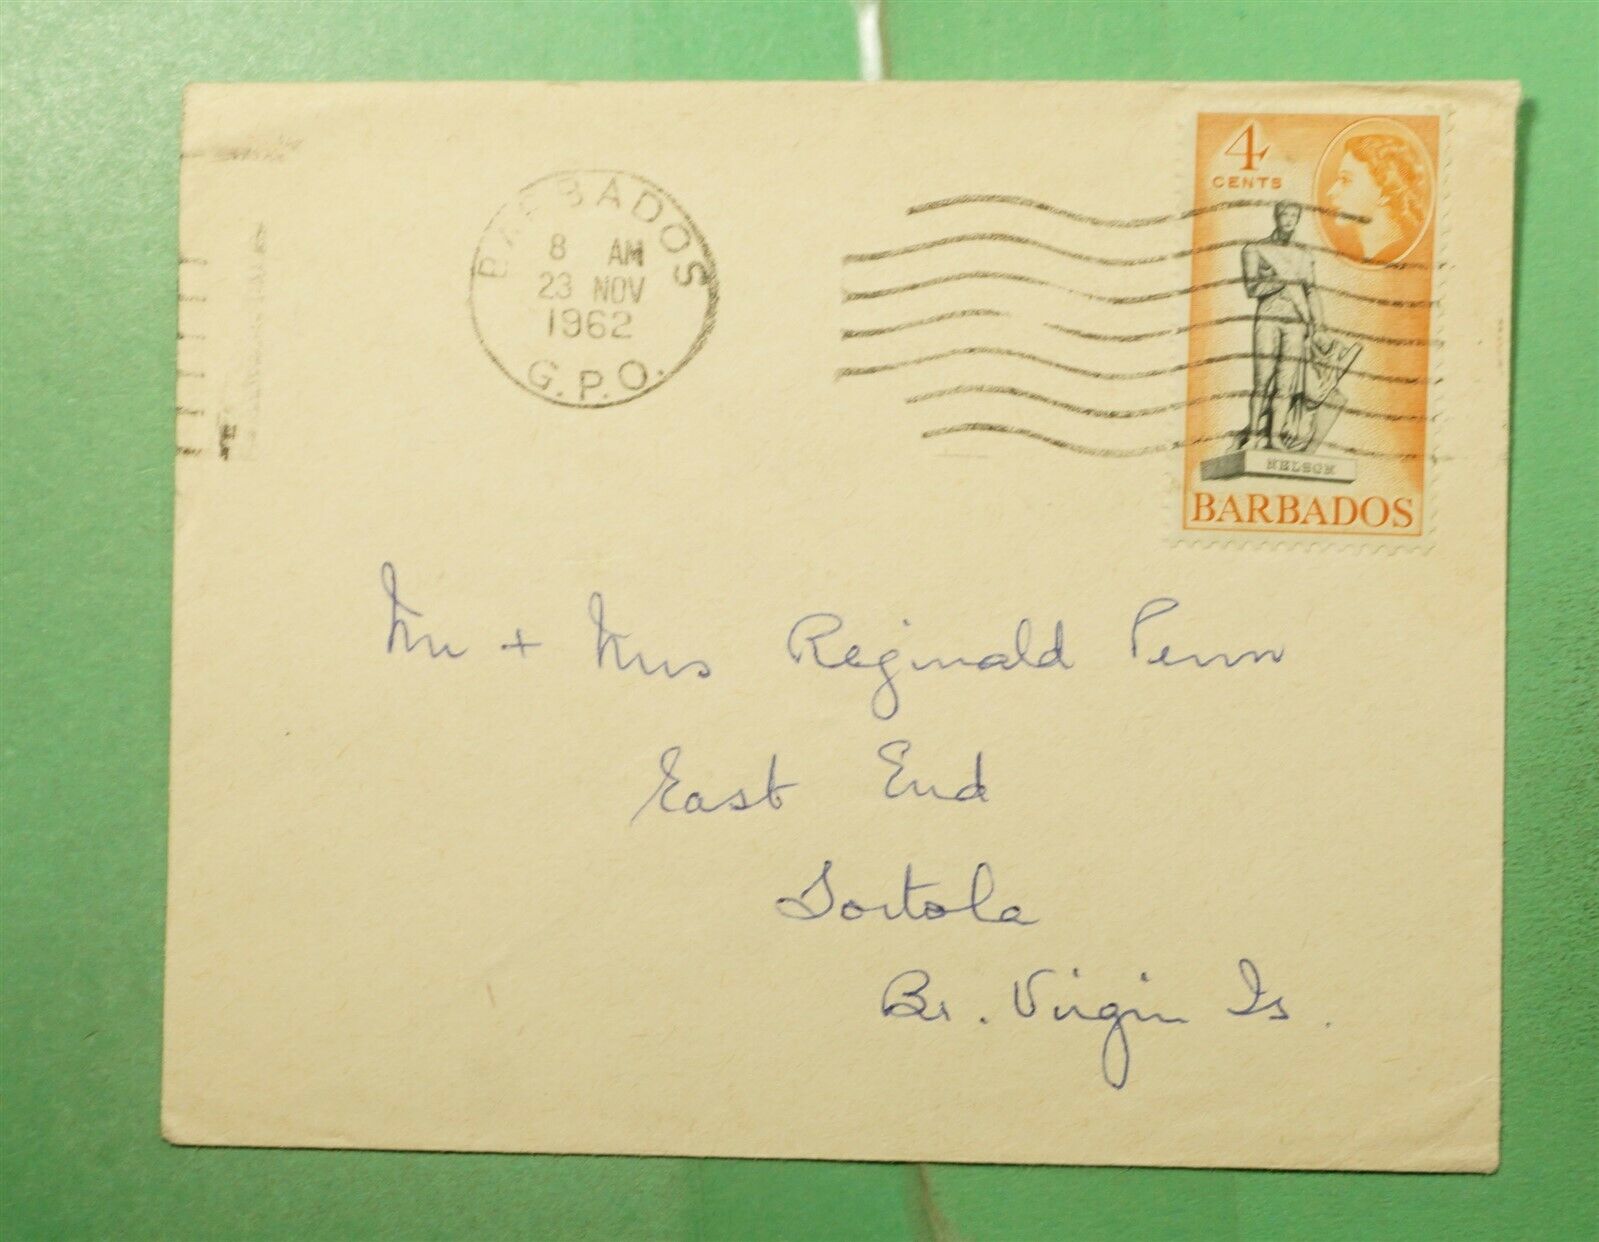 BARBADOS
8 AM
23 NOV
1962
G.P.O.
4
CENTS
NELSON
BARBADOS
Mr + Mrs Reginald Penn
East End
Tortola
Br. Virgin Is.